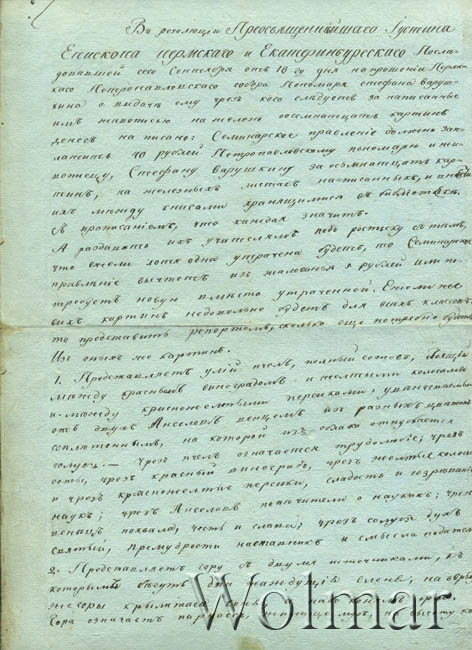 Въ резолюціи Преосвященнѣйшаго Іустина
Епископа пермскаго и Екатеринбургскаго Послѣ
довавшей сего Сентября отъ 18го дня на прошеніи Перм-
скаго Петропавловскаго собора Пономаря Стефана Вару-
кина о выдачѣ ему чрезъ кого слѣдуетъ за написанные
имъ живописью на желѣзѣ осемнатцать картинъ
денегъ написано: Семинарское правленіе должно зап-
латить 40 рублей Петропавловскому пономарю и жи-
вописцу, Стефану Варушкину за осьмнатцать кар-
тинъ, на желѣзныхъ листахъ написанныхъ, и
ихъ между книгами хранящимися въ библіотекѣ,
съ прописаніемъ, что каждая значитъ.
А раздавать ихъ учителямъ подъ росписку съ тѣмъ,
что ежели хотя одна утрачена будетъ, то Семинарское
правленіе вычтетъ изъ жалованья рублей или
требуетъ новую вмѣсто утраченной. Ежели же
сихъ картинъ недовольно будетъ для всѣхъ классовъ,
то представить репортомъ, сколько еще потребно будетъ
Изъ оныхъ же картинъ.
1. Представляетъ улій пчелъ, полный сотовъ,
между краснымъ виноградомъ и желтыми колосами
и между красножелтыми персиками,
отъ двухъ Ангеловъ вѣнцемъ изъ разныхъ цвѣтовъ
соплетеннымъ, на которой изъ облака опускается
голубь. — Чрезъ пчелъ означается трудолюбіе; чрезъ
соты, чрезъ красный виноградъ, чрезъ желтые колосы
и чрезъ красножелтые персики, сладость и созрѣваніе
наукъ; чрезъ Ангеловъ попечители о наукахъ; чрезъ
вѣнецъ похвала, честь и слава; чрезъ голубя духъ
святый, премудрости наставникъ и смысла податель
2. Представляетъ гору съ двумя источниками, къ
которымъ бѣгутъ два жаждущіе еленя; на верху
же горы крылатаго коня надъ коимъ
Гора означаетъ парнасъ, на высоту ко-
Wolmar